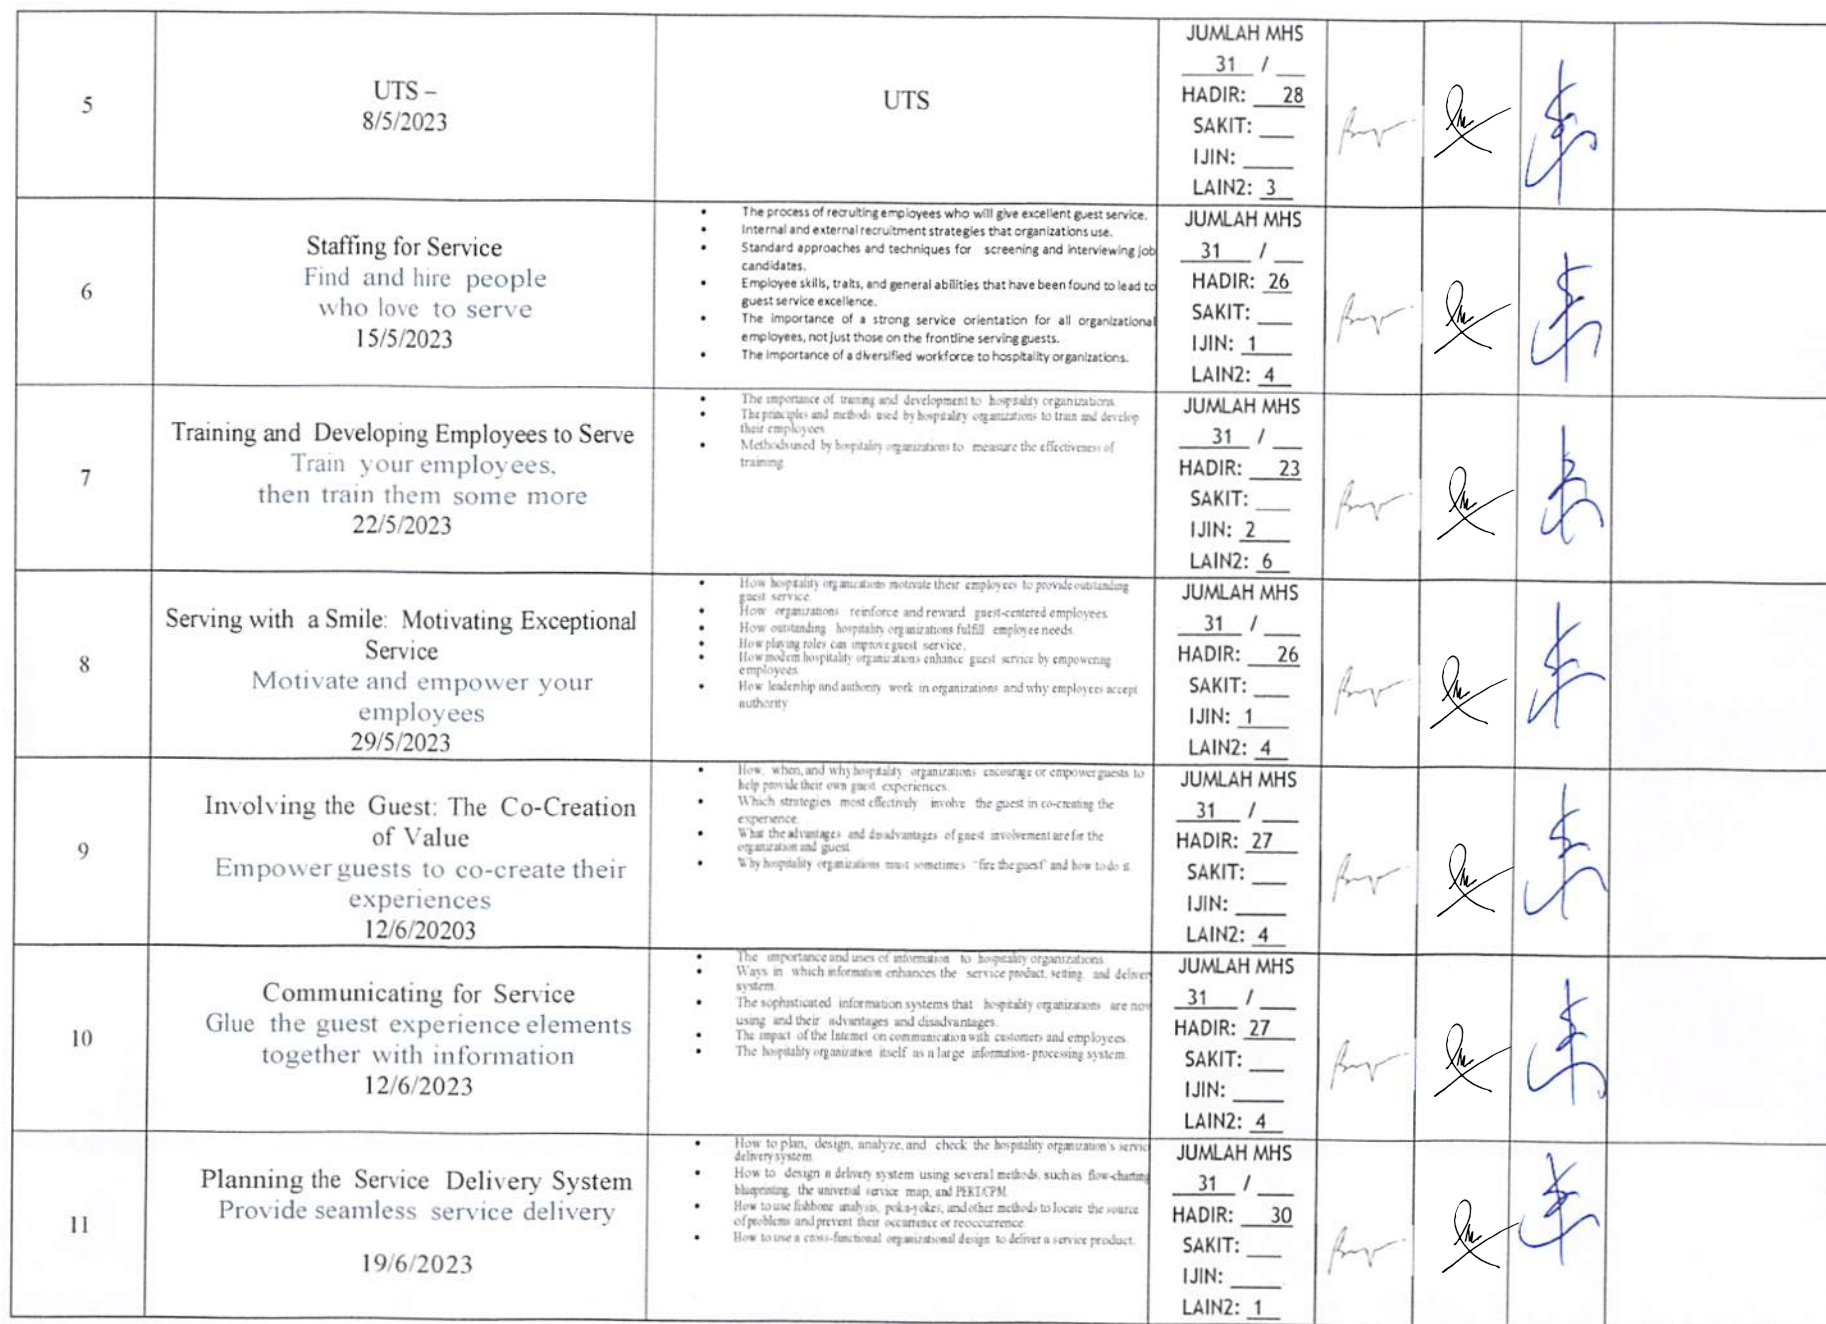 5
UTS –
8/5/2023
UTS
JUMLAH MHS
31 / __
HADIR: 28
SAKIT: __
IJIN: __
LAIN2: 3
6
Staffing for Service
Find and hire people
who love to serve
15/5/2023
• The process of recruiting employees who will give excellent guest service.
• Internal and external recruitment strategies that organizations use.
• Standard approaches and techniques for screening and interviewing job
candidates.
• Employee skills, traits, and general abilities that have been found to lead to
guest service excellence.
• The importance of a strong service orientation for all organizational
employees, not just those on the frontline serving guests.
• The importance of a diversified workforce to hospitality organizations.
JUMLAH MHS
31 / __
HADIR: 26
SAKIT: __
IJIN: 1
LAIN2: 4
7
Training and Developing Employees to Serve
Train your employees,
then train them some more
22/5/2023
• The importance of training and development to hospitality organizations.
• The principles and methods used by hospitality organizations to train and develop
their employees.
• Methods used by hospitality organizations to measure the effectiveness of
training.
JUMLAH MHS
31 / __
HADIR: 23
SAKIT: __
IJIN: 2
LAIN2: 6
8
Serving with a Smile: Motivating Exceptional
Service
Motivate and empower your
employees
29/5/2023
• How hospitality organizations motivate their employees to provide outstanding
guest service.
• How organizations reinforce and reward guest-centered employees.
• How outstanding hospitality organizations fulfill employee needs.
• How playing roles can improve guest service.
• How modern hospitality organizations enhance guest service by empowering
employees.
• How leadership and authority work in organizations and why employees accept
authority.
JUMLAH MHS
31 / __
HADIR: 26
SAKIT: __
IJIN: 1
LAIN2: 4
9
Involving the Guest: The Co-Creation
of Value
Empower guests to co-create their
experiences
12/6/20203
• How, when, and why hospitality organizations encourage or empower guests to
help provide their own guest experiences.
• Which strategies most effectively involve the guest in co-creating the
experience.
• What the advantages and disadvantages of guest involvement are for the
organization and guest.
• Why hospitality organizations must sometimes "fire the guest" and how to do it.
JUMLAH MHS
31 / __
HADIR: 27
SAKIT: __
IJIN: __
LAIN2: 4
10
Communicating for Service
Glue the guest experience elements
together with information
12/6/2023
• The importance and uses of information to hospitality organizations.
• Ways in which information enhances the service product, setting, and deliver
system.
• The sophisticated information systems that hospitality organizations are now
using and their advantages and disadvantages.
• The impact of the Internet on communication with customers and employees.
• The hospitality organization itself as a large information-processing system.
JUMLAH MHS
31 / __
HADIR: 27
SAKIT: __
IJIN: __
LAIN2: 4
11
Planning the Service Delivery System
Provide seamless service delivery
19/6/2023
• How to plan, design, analyze, and check the hospitality organization's servic
delivery system.
• How to design a delivery system using several methods, such as flow-charting
blueprinting, the universal service map, and PERT/CPM.
• How to use fishbone analysis, poka-yokes, and other methods to locate the source
of problems and prevent their occurrence or reoccurrence.
• How to use a cross-functional organizational design to deliver a service product.
JUMLAH MHS
31 / __
HADIR: 30
SAKIT: __
IJIN: __
LAIN2: 1